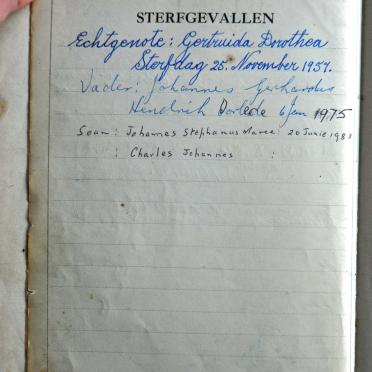 STERFGEVALLEN
Echtgenote: Gertruida Dorothea
Sterfdag 25. November 1957.
Vader: Johannes Gerhardus
Hendrik 6 Jan 1975
Seun: Johannes Stephanus Maree: 20 Junie 1983
: Charles Johannes :